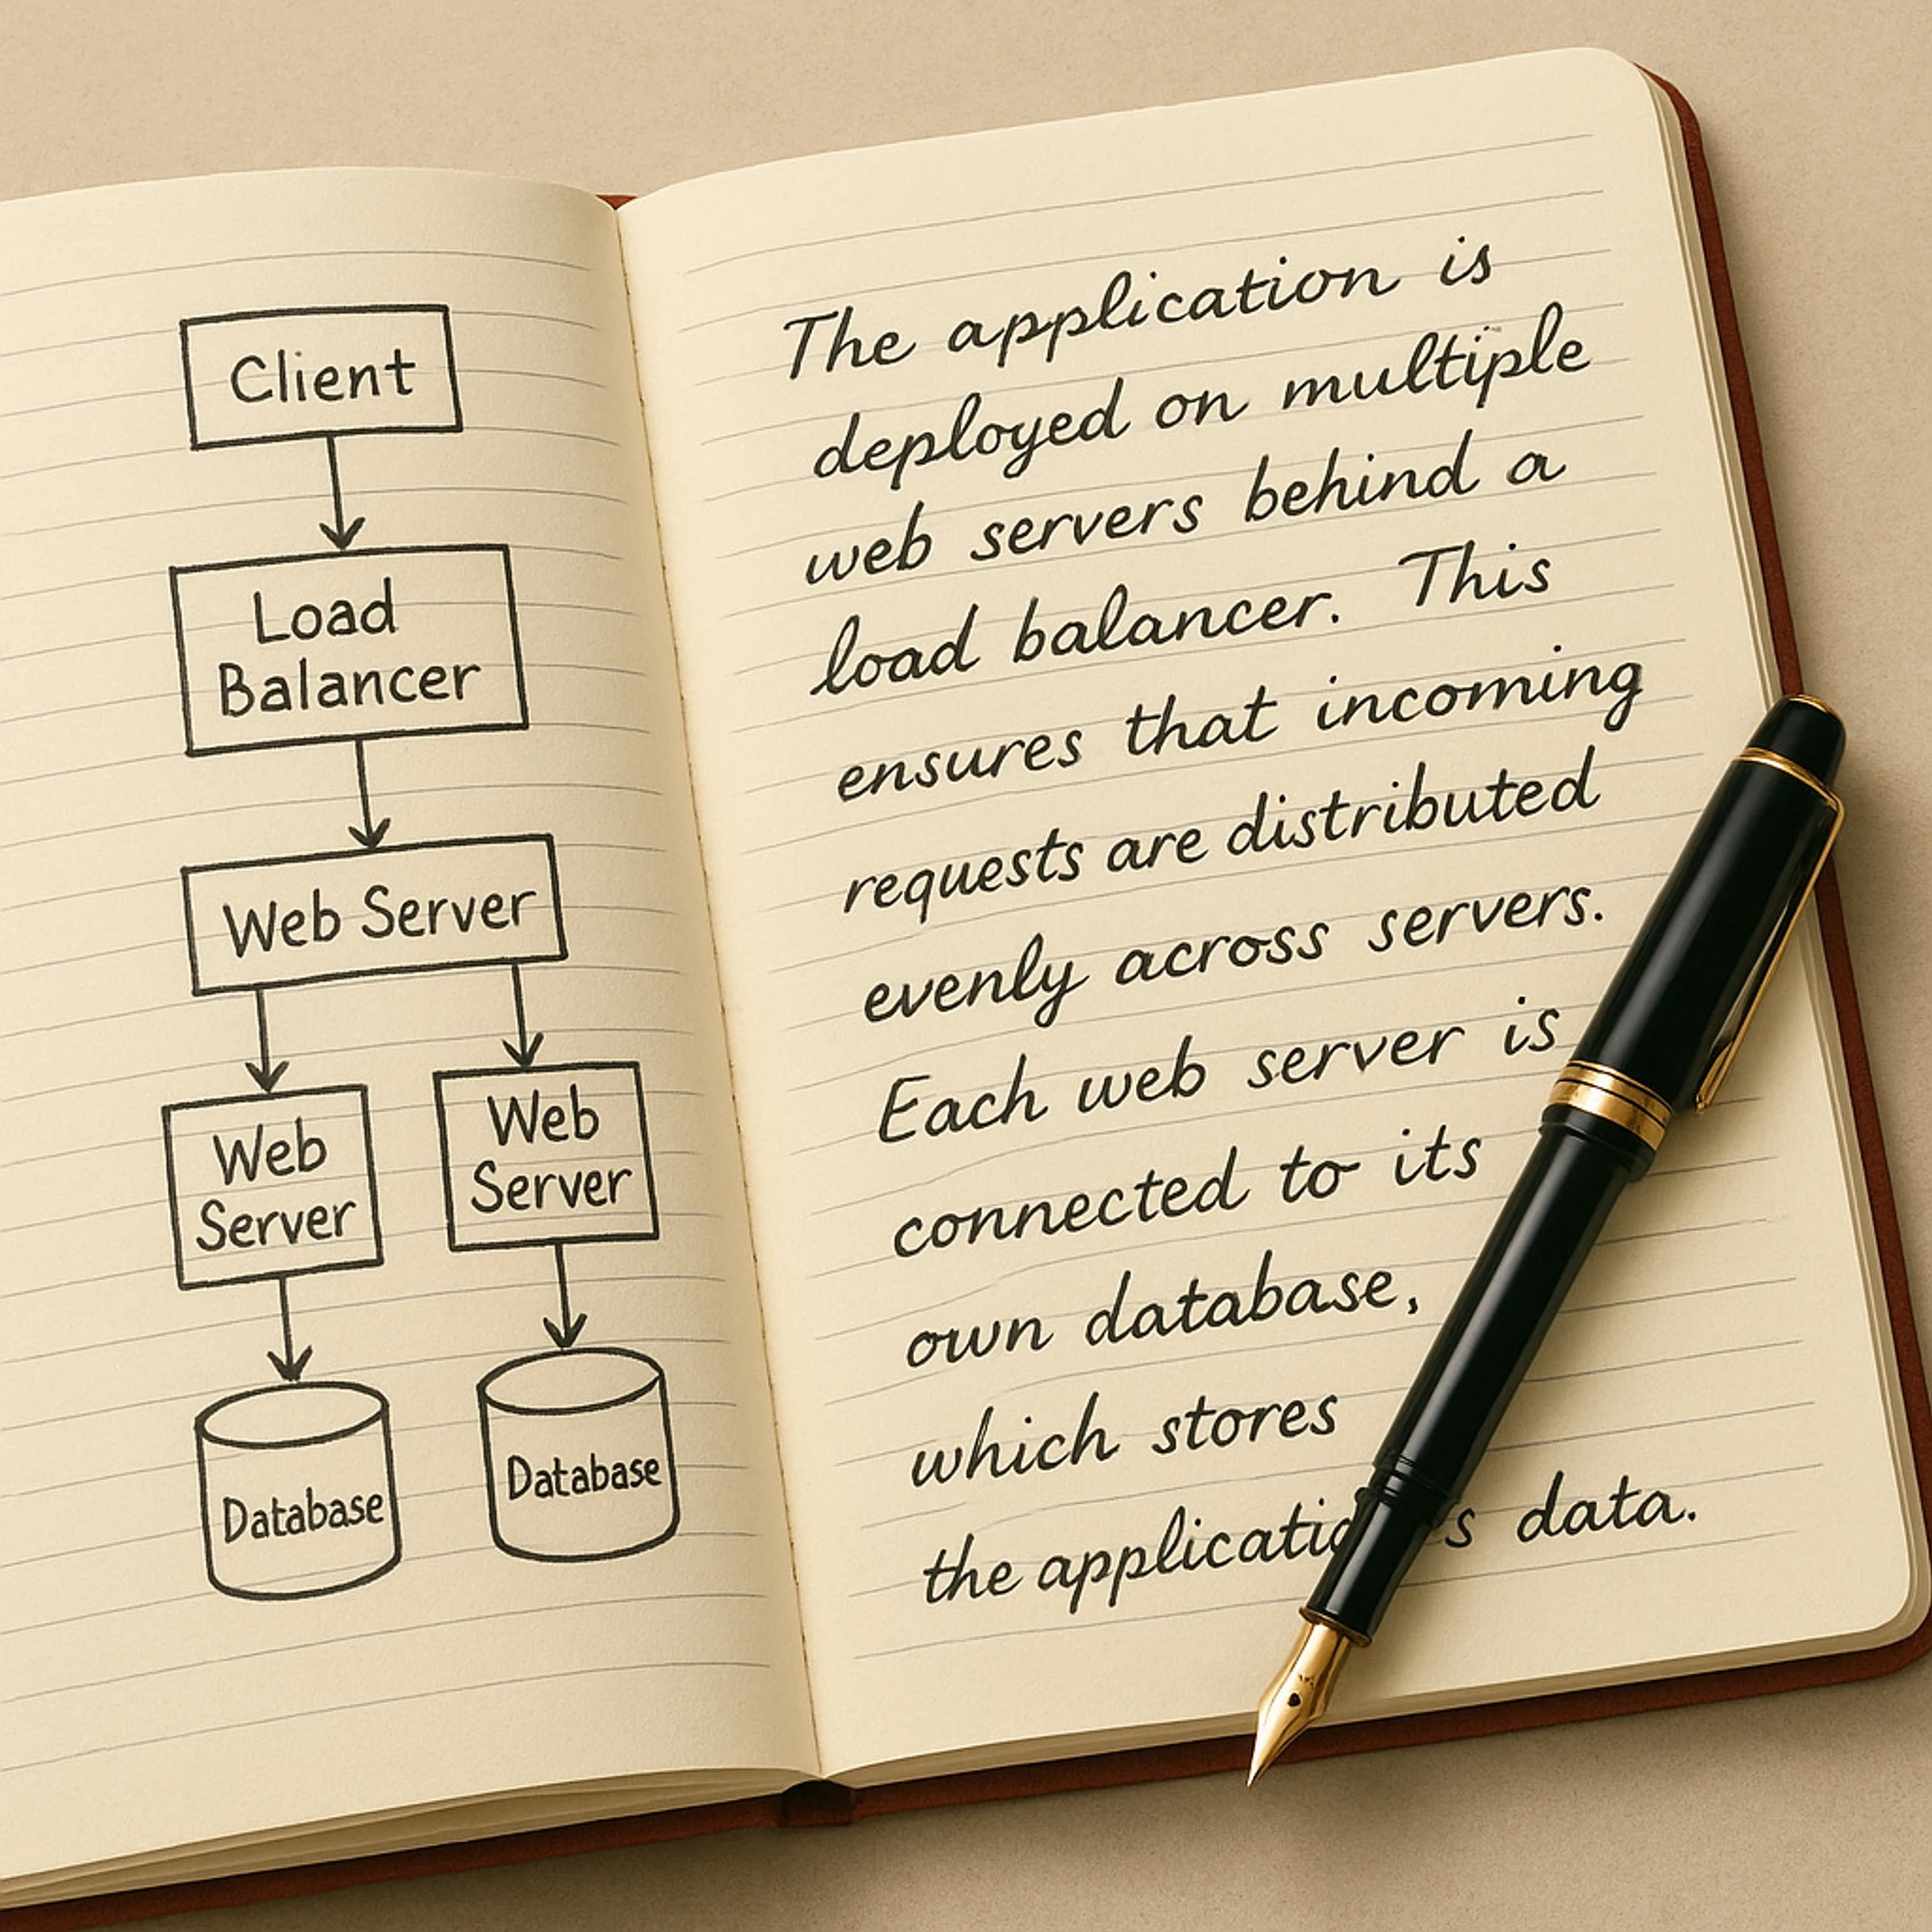 Client
Load
Balancer
Web Server
Web
Server
Web
Server
Database
Database
The application is
deployed on multiple
web servers behind a
load balancer. This
ensures that incoming
requests are distributed
evenly across servers.
Each web server is
connected to its
own database,
which stores
the data.